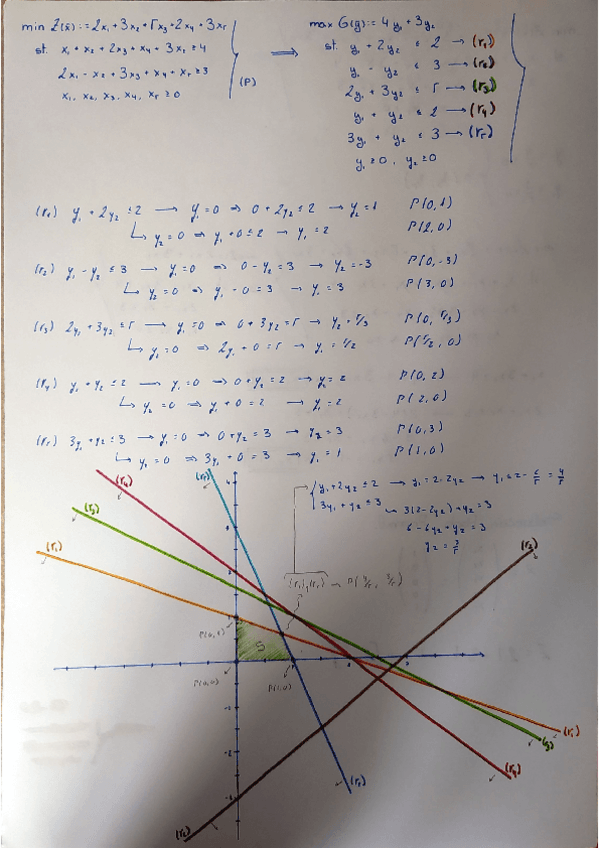 min Z(x̄) := 2x₁ + 3x₂ + 5x₃ + 2x₄ + 3x₅
st. x₁ + x₂ + 2x₃ + x₄ + 3x₅ ≥ 4
2x₁ - x₂ + 3x₃ + x₄ + x₅ ≥ 3
x₁, x₂, x₃, x₄, x₅ ≥ 0
(P)
⟹
max G(ȳ) := 4y₁ + 3y₂
st. y₁ + 2y₂ ≤ 2 → (r₁)
y₁ - y₂ ≤ 3 → (r₂)
2y₁ + 3y₂ ≤ 5 → (r₃)
y₁ + y₂ ≤ 2 → (r₄)
3y₁ + y₂ ≤ 3 → (r₅)
y₁ ≥ 0, y₂ ≥ 0
(r₁) y₁ + 2y₂ ≤ 2 → y₁ = 0 ⇒ 0 + 2y₂ ≤ 2 → y₂ = 1 P(0,1)
↳ y₂ = 0 ⇒ y₁ + 0 ≤ 2 → y₁ = 2 P(2,0)
(r₂) y₁ - y₂ ≤ 3 → y₁ = 0 ⇒ 0 - y₂ = 3 → y₂ = -3 P(0,-3)
↳ y₂ = 0 ⇒ y₁ - 0 = 3 → y₁ = 3 P(3,0)
(r₃) 2y₁ + 3y₂ ≤ 5 → y₁ = 0 ⇒ 0 + 3y₂ = 5 → y₂ = 5/3 P(0, 5/3)
↳ y₁ = 0 ⇒ 2y₁ + 0 = 5 → y₁ = 5/2 P(5/2, 0)
(r₄) y₁ + y₂ ≤ 2 → y₁ = 0 ⇒ 0 + y₂ = 2 → y₂ = 2 P(0,2)
↳ y₂ = 0 ⇒ y₁ + 0 = 2 → y₁ = 2 P(2,0)
(r₅) 3y₁ + y₂ ≤ 3 → y₁ = 0 ⇒ 0 + y₂ = 3 → y₂ = 3 P(0,3)
↳ y₂ = 0 ⇒ 3y₁ + 0 = 3 → y₁ = 1 P(1,0)
y₁ + 2y₂ ≤ 2 → y₁ = 2 - 2y₂ → y₁ = 2 - 6/5 = 4/5
3y₁ + y₂ ≤ 3 ↳ 3(2 - 2y₂) + y₂ = 3
6 - 6y₂ + y₂ = 3
y₂ = 3/5
(r₁),(r₅) → P(4/5, 3/5)
(r₄)
(r₅)
(r₃)
(r₁)
(r₂)
P(0,1)
S
P(0,0)
P(1,0)
(r₁)
(r₃)
(r₄)
(r₅)
(r₂)